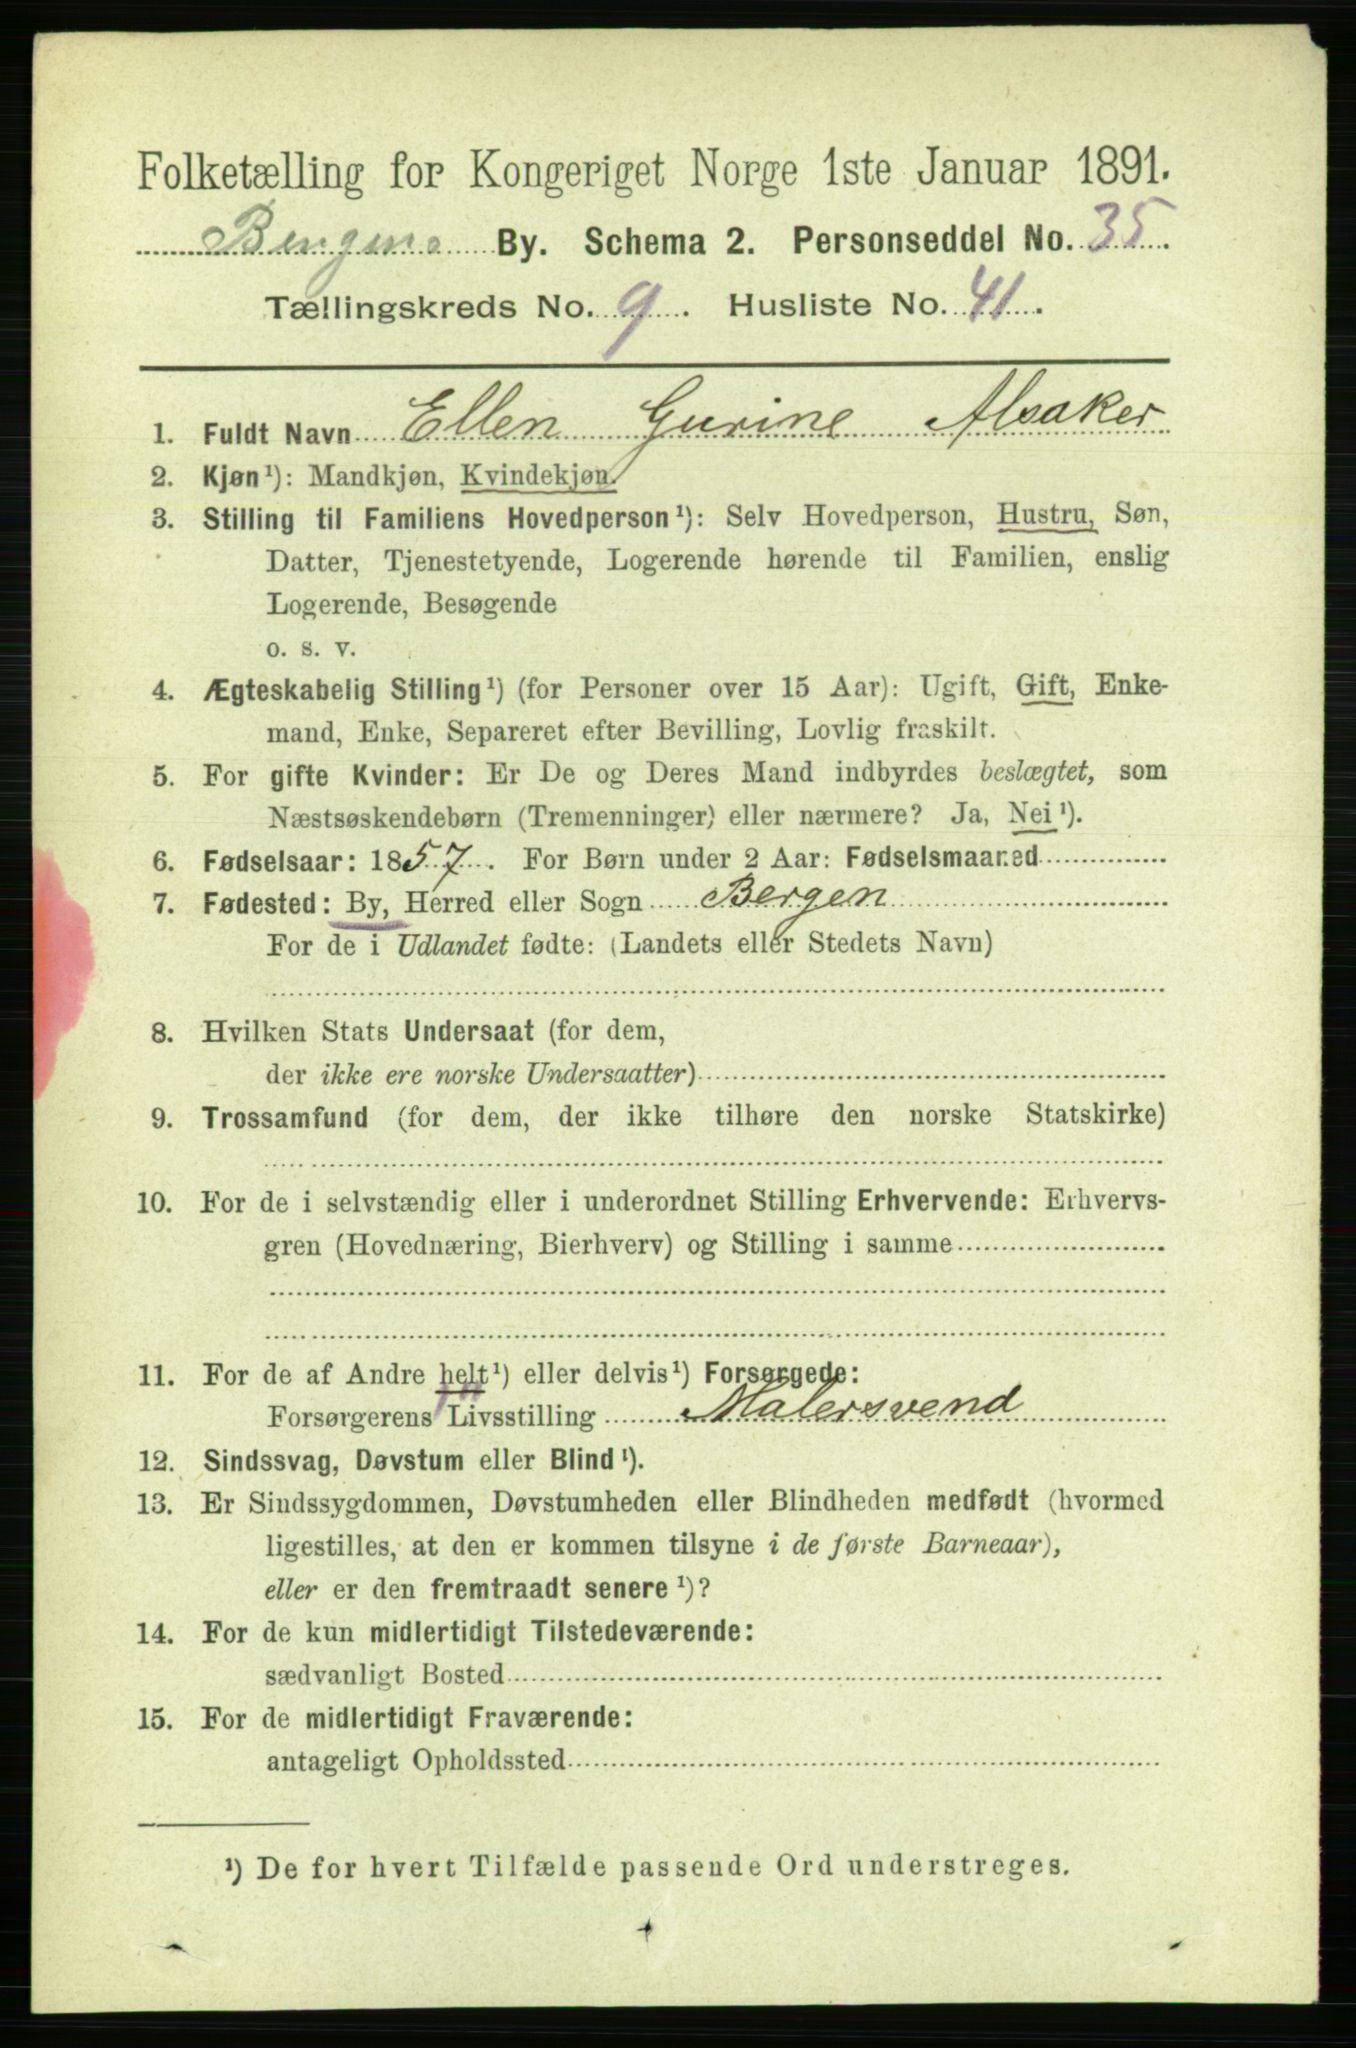 Folketælling for Kongeriget Norge 1ste Januar 1891.
Bergens By. Schema 2. Personseddel No. 35.
Tællingskreds No. 9. Husliste No. 41.
1. Fuldt Navn Ellen Gurine Alsaker
2. Kjøn¹): Mandkjøn, Kvindekjøn.
3. Stilling til Familiens Hovedperson¹): Selv Hovedperson, Hustru, Søn,
Datter, Tjenestetyende, Logerende hørende til Familien, enslig
Logerende, Besøgende
o. s. v.
4. Ægteskabelig Stilling¹) (for Personer over 15 Aar): Ugift, Gift, Enke-
mand, Enke, Separeret efter Bevilling, Lovlig fraskilt.
5. For gifte Kvinder: Er De og Deres Mand indbyrdes beslægtet, som
Næstsøskendebørn (Tremenninger) eller nærmere? Ja, Nei¹).
6. Fødselsaar: 1857. For Børn under 2 Aar: Fødselsmaaned
7. Fødested: By, Herred eller Sogn Bergen
For de i Udlandet fødte: (Landets eller Stedets Navn)
8. Hvilken Stats Undersaat (for dem,
der ikke ere norske Undersaatter)
9. Trossamfund (for dem, der ikke tilhøre den norske Statskirke)
10. For de i selvstændig eller i underordnet Stilling Erhvervende: Erhvervs-
gren (Hovednæring, Bierhverv) og Stilling i samme
11. For de af Andre helt¹) eller delvis¹) Forsørgede:
Forsørgerens Livsstilling Malersvend
12. Sindssvag, Døvstum eller Blind¹).
13. Er Sindssygdommen, Døvstumheden eller Blindheden medfødt (hvormed
ligestilles, at den er kommen tilsyne i de første Barneaar),
eller er den fremtraadt senere¹)?
14. For de kun midlertidigt Tilstedeværende:
sædvanligt Bosted
15. For de midlertidigt Fraværende:
antageligt Opholdssted
¹) De for hvert Tilfælde passende Ord understreges.